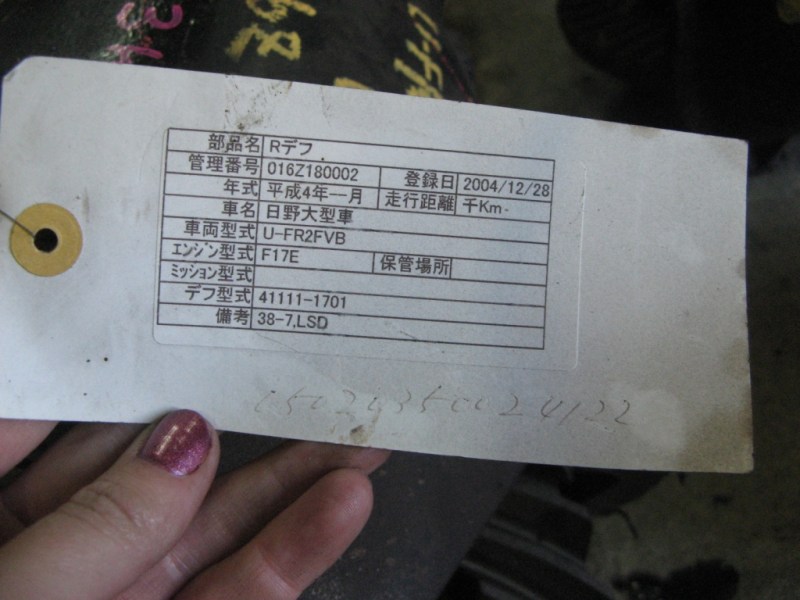 68
U-F
部品名 Rデフ
管理番号 016Z180002 登録日 2004/12/28
年式 平成4年--月 走行距離 千Km-
車名 日野大型車
車両型式 U-FR2FVB
エンジン型式 F17E 保管場所
ミッション型式
デフ型式 41111-1701
備考 38-7,LSD